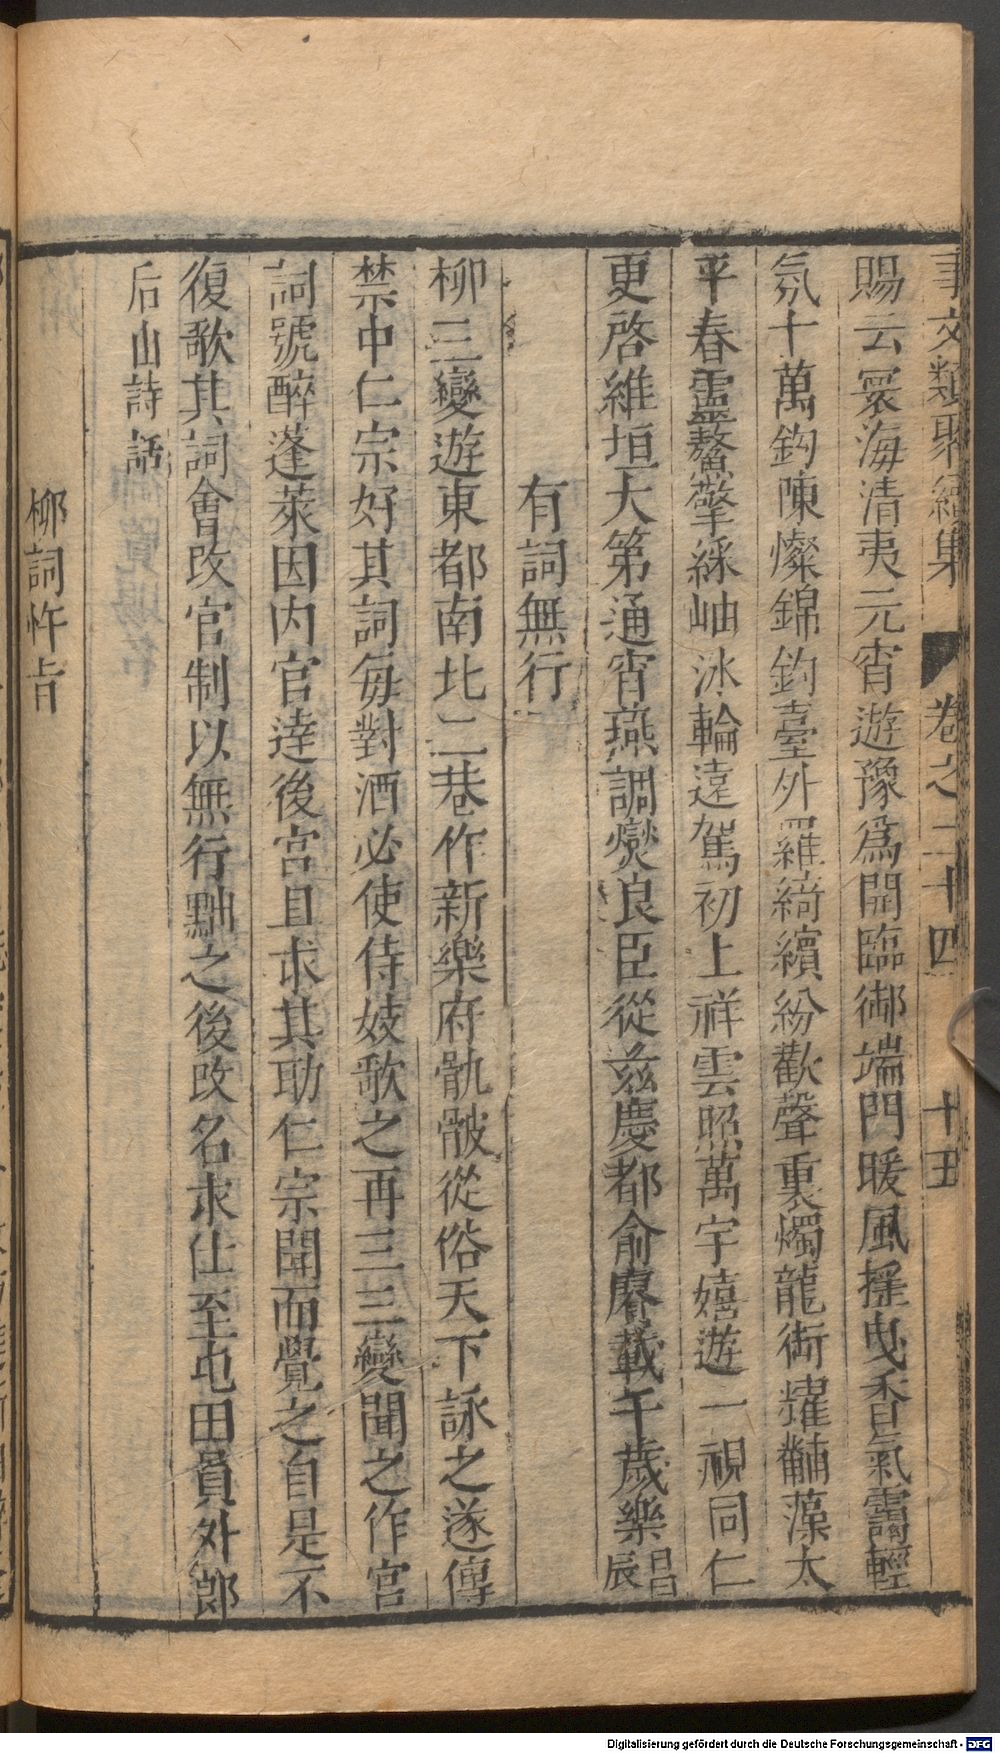 事文類聚續集 卷之二十四 十五
賜云寰海清夷元宵遊豫爲開臨御端門暖風揺曳香氣靄輕
氛十萬鈎陳燦錦鈎臺外羅綺繽紛歡聲裏燭龍銜耀黼藻太
平春靈鰲擎綵岫氷輪遠駕初上祥雲照萬宇嬉遊一視同仁
更啓維垣大第通宵燕調爕良臣從兹慶都俞賡載千歲樂昌辰
有詞無行
柳三變遊東都南北二巷作新樂府骫骳從俗天下詠之遂傳
禁中仁宗好其詞每對酒必使侍妓歌之再三三變聞之作宮
詞號醉蓬萊因内官達後宮且求其助仁宗聞而覺之自是不
復歌其詞會改官制以無行黜之後改名求仕至屯田員外郎
后山詩話
柳詞忤旨
Digitalisierung gefördert durch die Deutsche Forschungsgemeinschaft - DFG